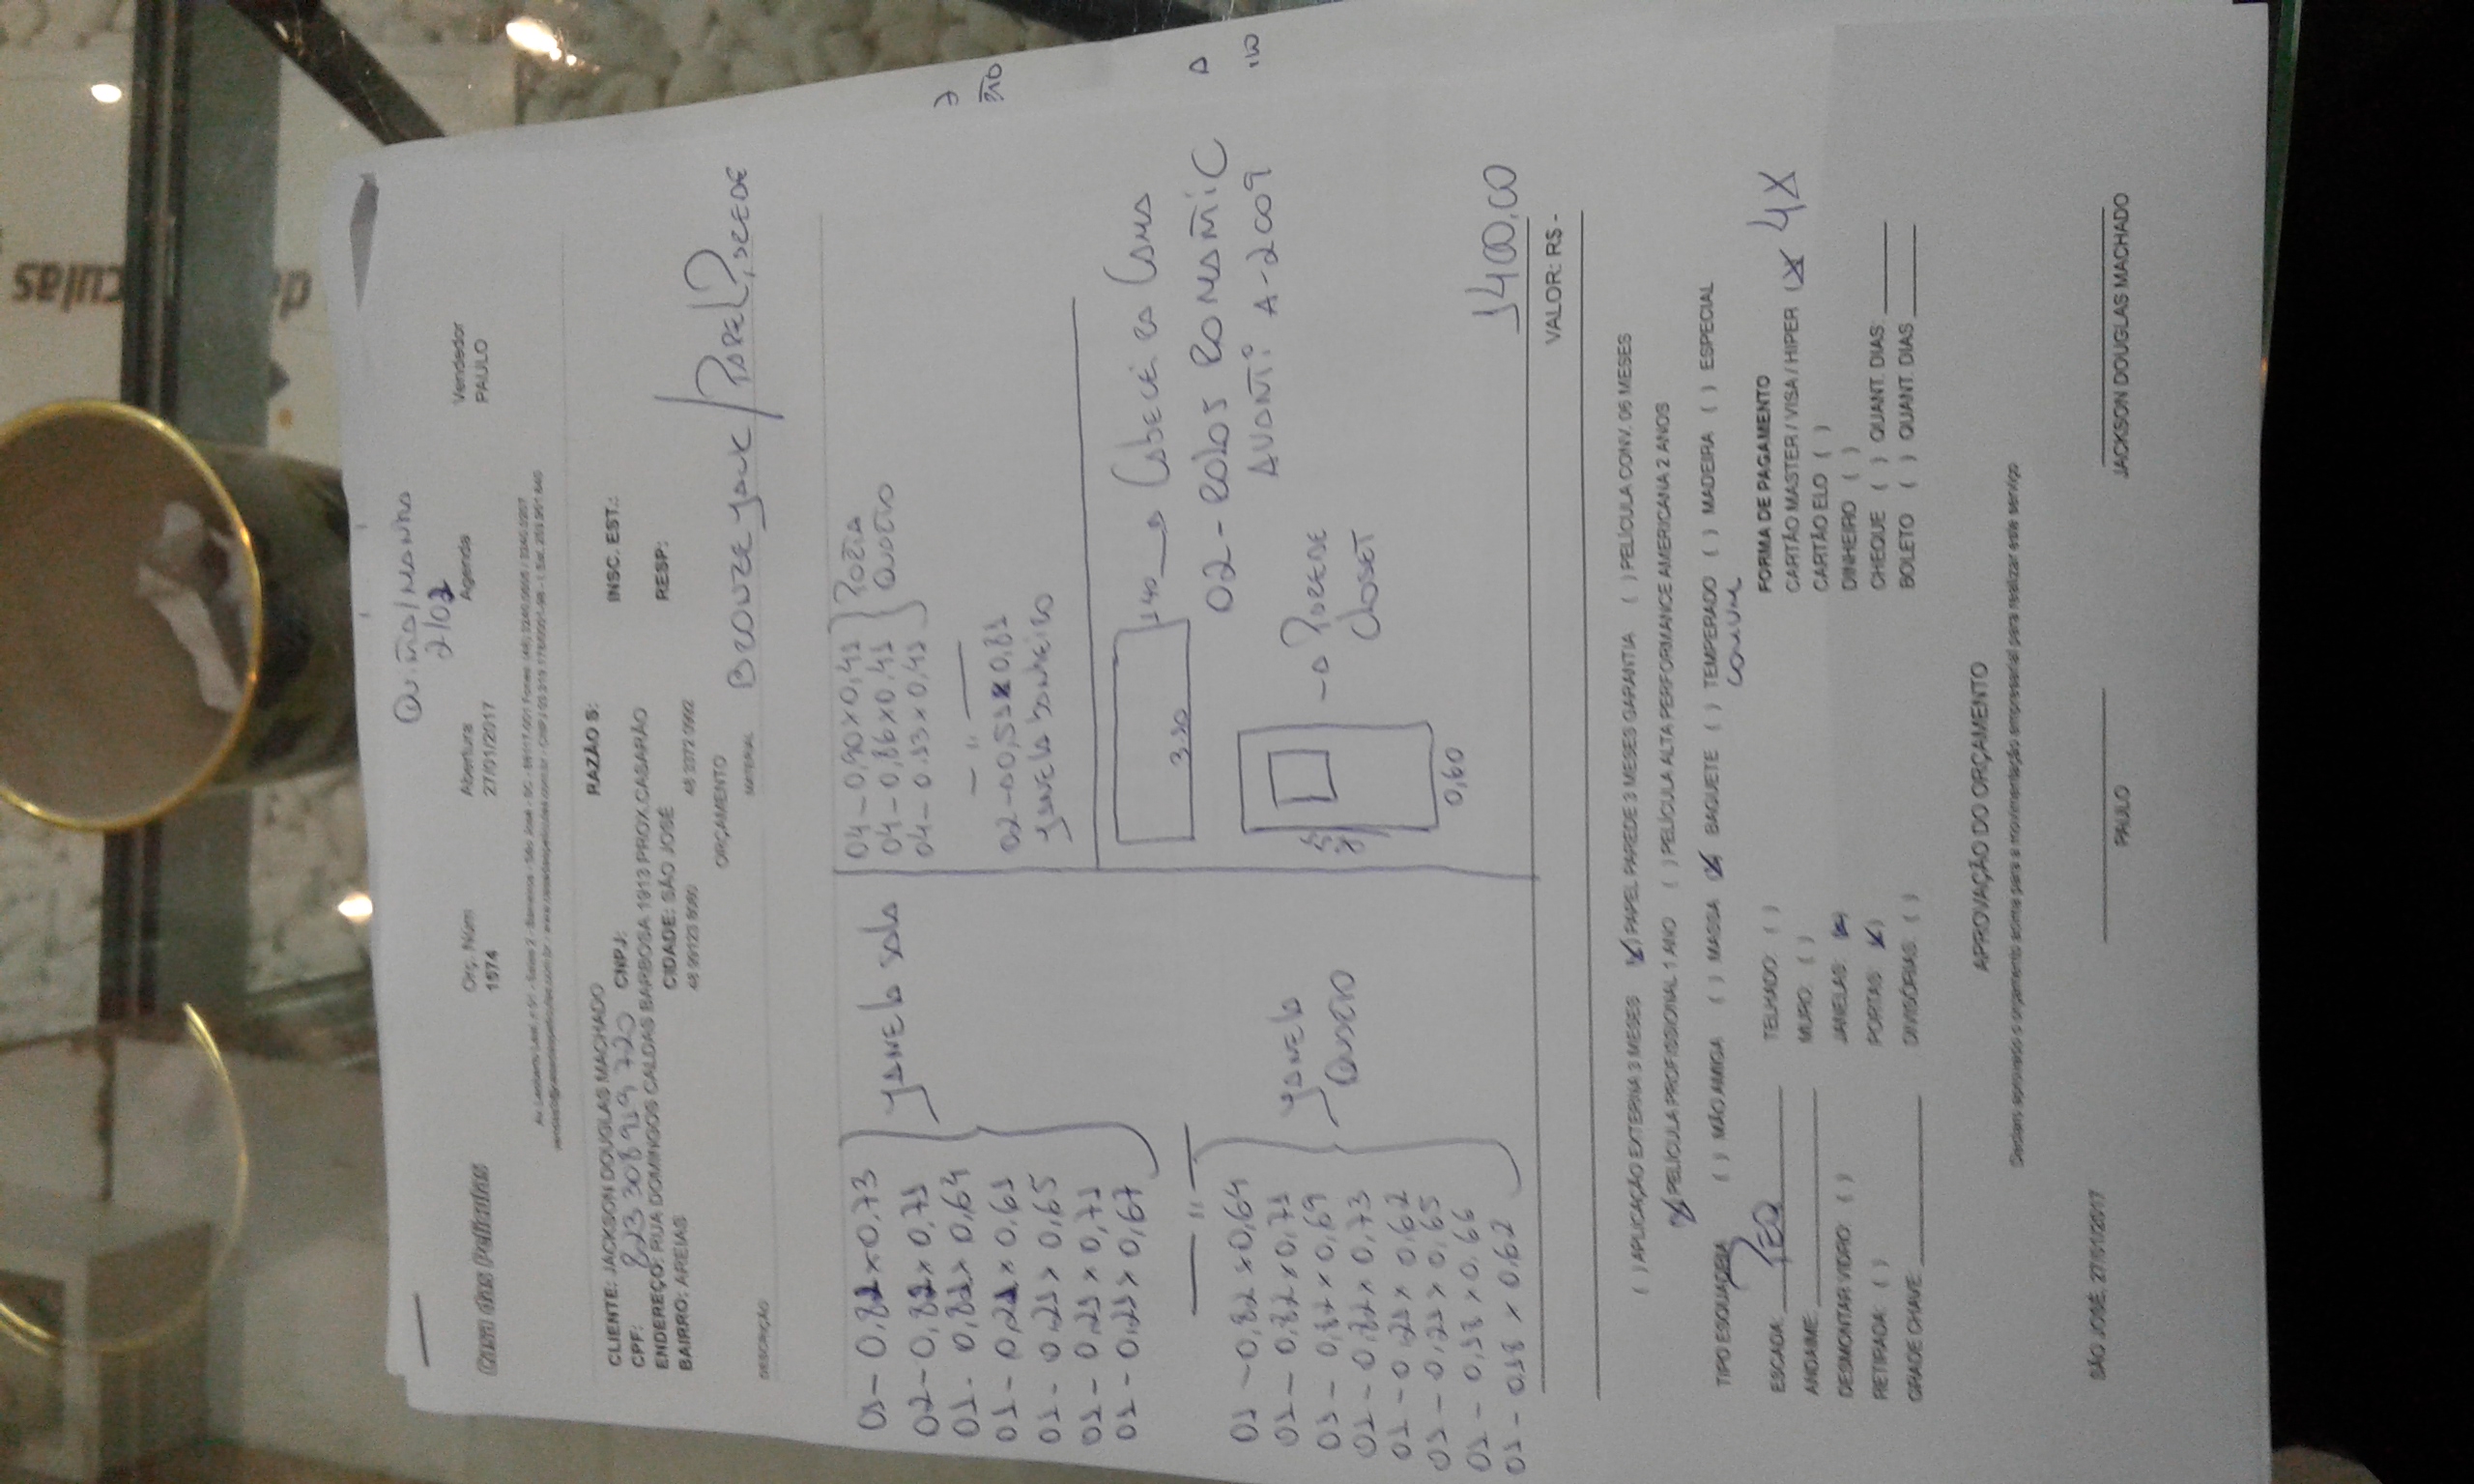 culas
de
Quinta/manhã
2/02
Casa das Películas
Orç. Núm
1574
Abertura
27/01/2017
Agenda
Vendedor
PAULO
CLIENTE: JACKSON DOUGLAS MACHADO
RAZÃO S:
CPF: 823 308 919 720 CNPJ:
INSC. EST.:
ENDEREÇO: RUA DOMINGOS CALDAS BARBOSA 1913 PROX.CASARÃO
BAIRRO: AREIAS
CIDADE: SÃO JOSÉ
RESP:
ORÇAMENTO
DESCRIÇÃO
MATERIAL
Bronze Jack / Papel P. Parede
01 - 0,82 x 0,73
02 - 0,82 x 0,71
01 - 0,82 x 0,64
01 - 0,21 x 0,61
01 - 0,21 x 0,65
01 - 0,21 x 0,71
01 - 0,21 x 0,67
Janela sala
01 - 0,82 x 0,64
01 - 0,82 x 0,71
01 - 0,82 x 0,69
01 - 0,82 x 0,73
01 - 0,21 x 0,62
01 - 0,21 x 0,65
01 - 0,38 x 0,66
01 - 0,38 x 0,62
Janela
Quarto
04 - 0,90 x 0,41
04 - 0,86 x 0,41
04 - 0,33 x 0,41
Porta
Quarto
02 - 0,51 x 0,81
Janela banheiro
3,30
1,40
Cabeceira Cama
02 - Rolos Romantic
Avanti A-2009
0,60
Parede
Closet
1400,00
VALOR: R$ -
( ) APLICAÇÃO EXTERNA 3 MESES (X) PAPEL PAREDE 3 MESES GARANTIA ( ) PELÍCULA CONV. 06 MESES
(X) PELÍCULA PROFISSIONAL 1 ANO ( ) PELÍCULA ALTA PERFORMANCE AMERICANA 2 ANOS
TIPO ESQUADRIA ( ) MÃO AMIGA ( ) MASSA (X) BAGUETE ( ) TEMPERADO ( ) MADEIRA ( ) ESPECIAL
comum
ESCADA: PEQ
ANDAIME:
DESMONTAR VIDRO: ( )
RETIRADA: ( )
GRADE CHAVE:
TELHADO: ( )
MURO: ( )
JANELAS: (X)
PORTAS: (X)
DIVISÓRIAS: ( )
FORMA DE PAGAMENTO
CARTÃO MASTER / VISA / HIPER (X) 4X
CARTÃO ELO ( )
DINHEIRO ( )
CHEQUE ( ) QUANT. DIAS:
BOLETO ( ) QUANT. DIAS
APROVAÇÃO DO ORÇAMENTO
SÃO JOSÉ, 27/01/2017
PAULO
JACKSON DOUGLAS MACHADO